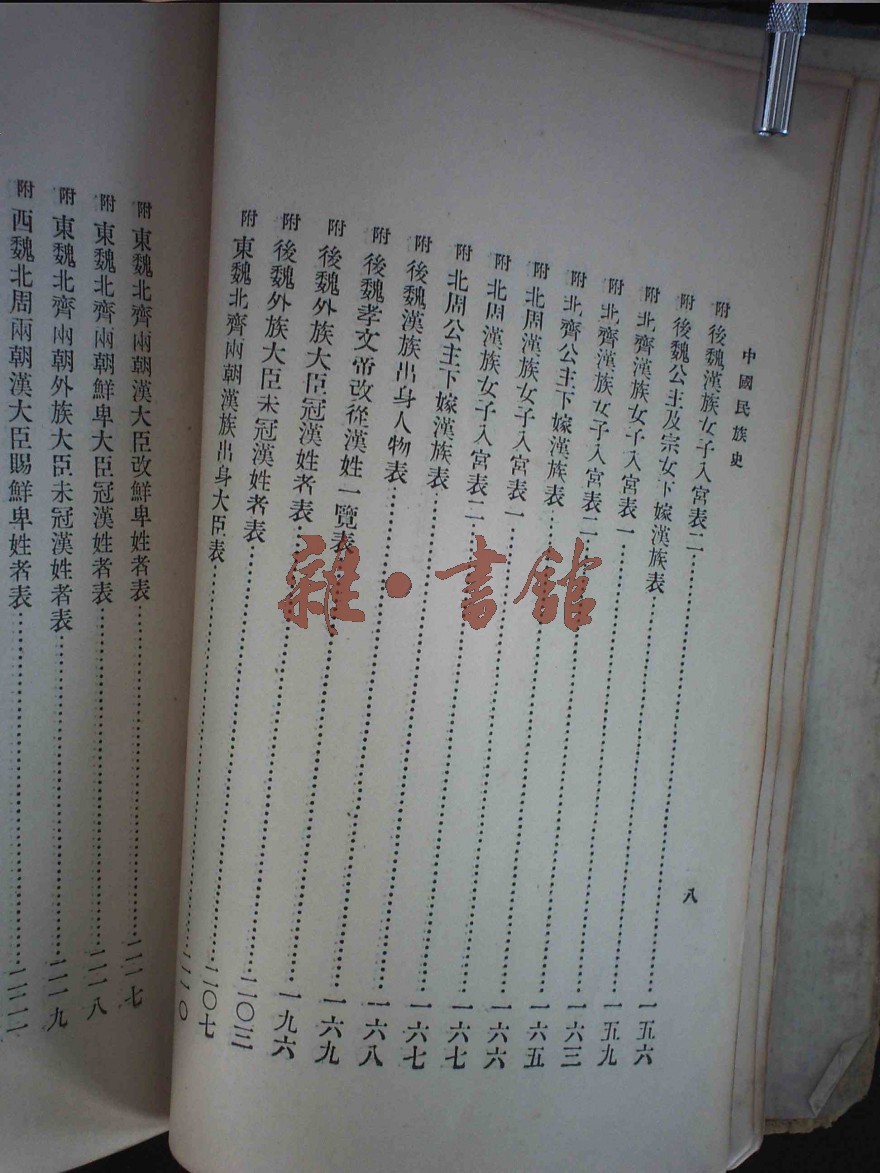 中國民族史
八
附後魏漢族女子入宮表二……一五六
附後魏公主及宗女下嫁漢族表……一五九
附北齊漢族女子入宮表一……一六三
附北齊漢族女子入宮表二……一六五
附北齊公主下嫁漢族表……一六六
附北周漢族女子入宮表一……一六七
附北周漢族女子入宮表二……一六七
附北周公主下嫁漢族表……一六八
附後魏漢族出身人物表……一六九
附後魏孝文帝改從漢姓一覽表……一九六
附後魏外族大臣冠漢姓者表……二〇三
附後魏外族大臣未冠漢姓者表……二〇七
附東魏北齊兩朝漢族出身大臣表……二一〇
附東魏北齊兩朝漢大臣改鮮卑姓者表……二一七
附東魏北齊兩朝鮮卑大臣冠漢姓者表……二一八
附東魏北齊兩朝外族大臣未冠漢姓者表……二一九
附西魏北周兩朝漢大臣賜鮮卑姓者表……
雜·書館